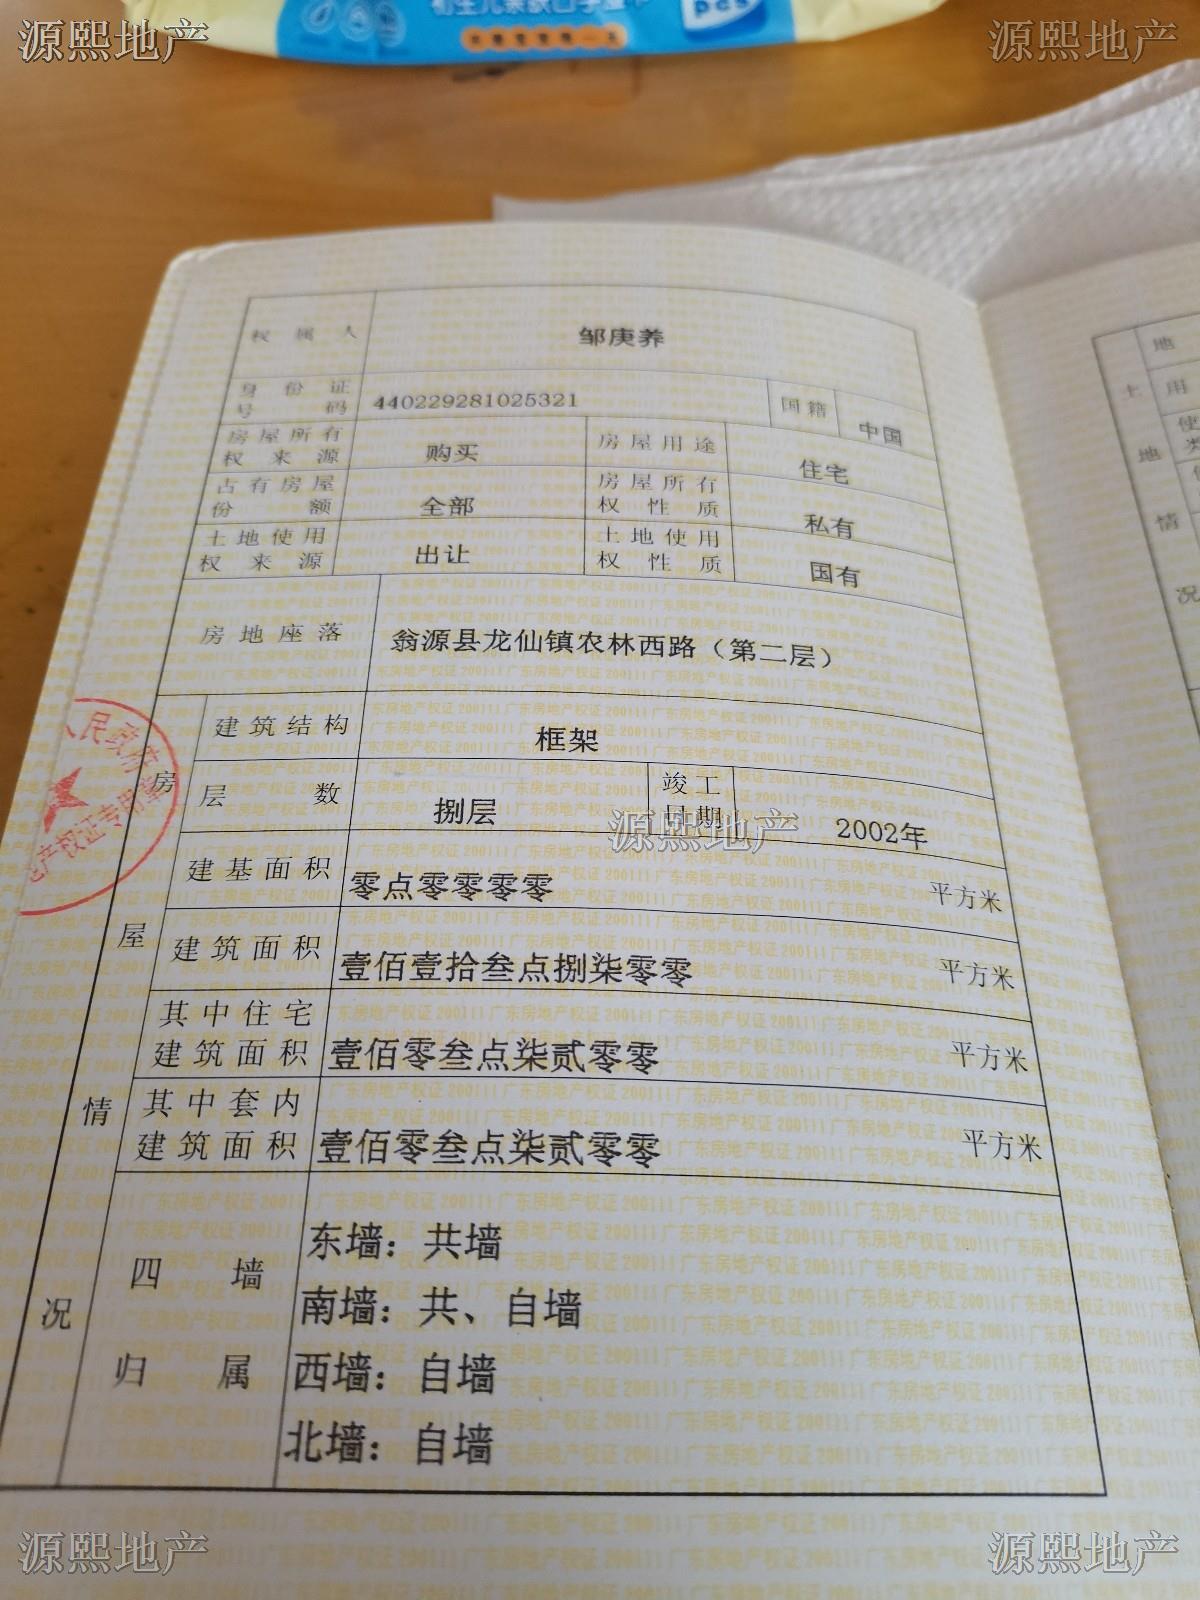 源熙地产
源熙地产
pes
权属人 邹庚养
身份证号码 440229281025321 国籍 中国
房屋所有权来源 购买 房屋用途 住宅
占有房屋份额 全部 房屋所有权性质 私有
土地使用权来源 出让 土地使用权性质 国有
房地座落 翁源县龙仙镇农林西路（第二层）
房屋情况
建筑结构 框架
层数 捌层 竣工日期 2002年
源熙地产
建基面积 零点零零零零 平方米
建筑面积 壹佰壹拾叁点捌柒零零 平方米
其中住宅建筑面积 壹佰零叁点柒贰零零 平方米
其中套内建筑面积 壹佰零叁点柒贰零零 平方米
四墙归属
东墙：共墙
南墙：共、自墙
西墙：自墙
北墙：自墙
人民政府
产权证专用章
土地情况
地
用
使
类
源熙地产
源熙地产